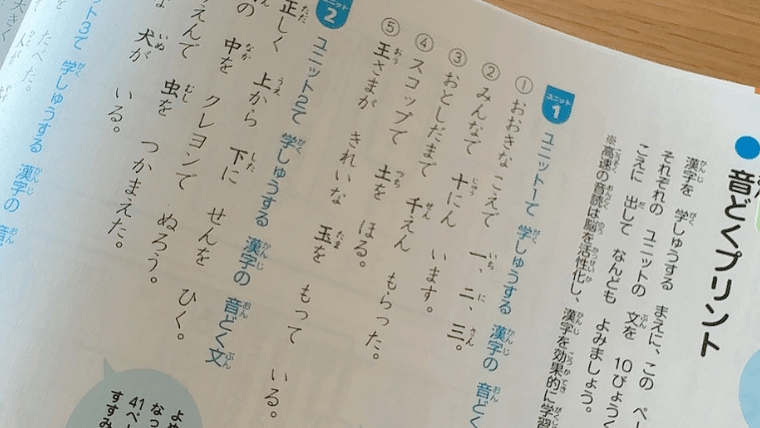 音どくプリント
漢字を 学しゅうする まえに、この
それぞれの ユニットの 文を 10びょう
こえに 出して なんども よみましょう。
※高速の音読は脳を活性化し、漢字を効果的に学習
ユニット 1 ユニット1で 学しゅうする 漢字の 音どく
① おおきな こえで 一、二、三。
② みんなで 十にん います。
③ おとしだまで 千えん もらった。
④ スコップで 土を ほる。
⑤ 王さまが きれいな 玉を もって いる。
ユニット 2 ユニット2で 学しゅうする 漢字の 音どく文
正しく 上から 下に せんを ひく。
の 中を クレヨンで ぬろう。
えんで 虫を つかまえた。
犬が いる。
ト3で 学しゅうする 漢字の 音
たべた。
大きく
なっ
41ペー
すすみ